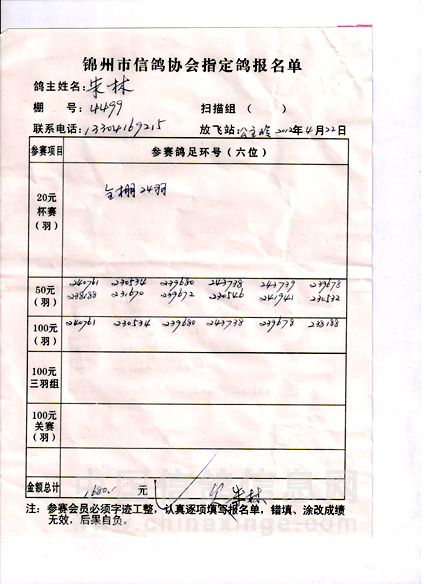 锦州市信鸽协会指定鸽报名单
鸽主姓名: 朱林
棚 号: 4499 扫描组 ( )
联系电话: 13304169215 放飞站: 公主岭 2012年4月22日
参赛项目 参赛鸽足环号(六位)
20元杯赛(羽) 全棚24羽
50元(羽) 240761 230534 239680 243738 243739 239678
238188 231670 239672 230546 241941 230532
100元(羽) 240761 230534 239680 243738 239678 238188
100元三羽组
100元关赛(羽)
金额总计 1680. 元 朱林
注: 参赛会员必须字迹工整,认真逐项填写报名单,错填、涂改成绩
无效,后果自负。
中国信鸽信息网